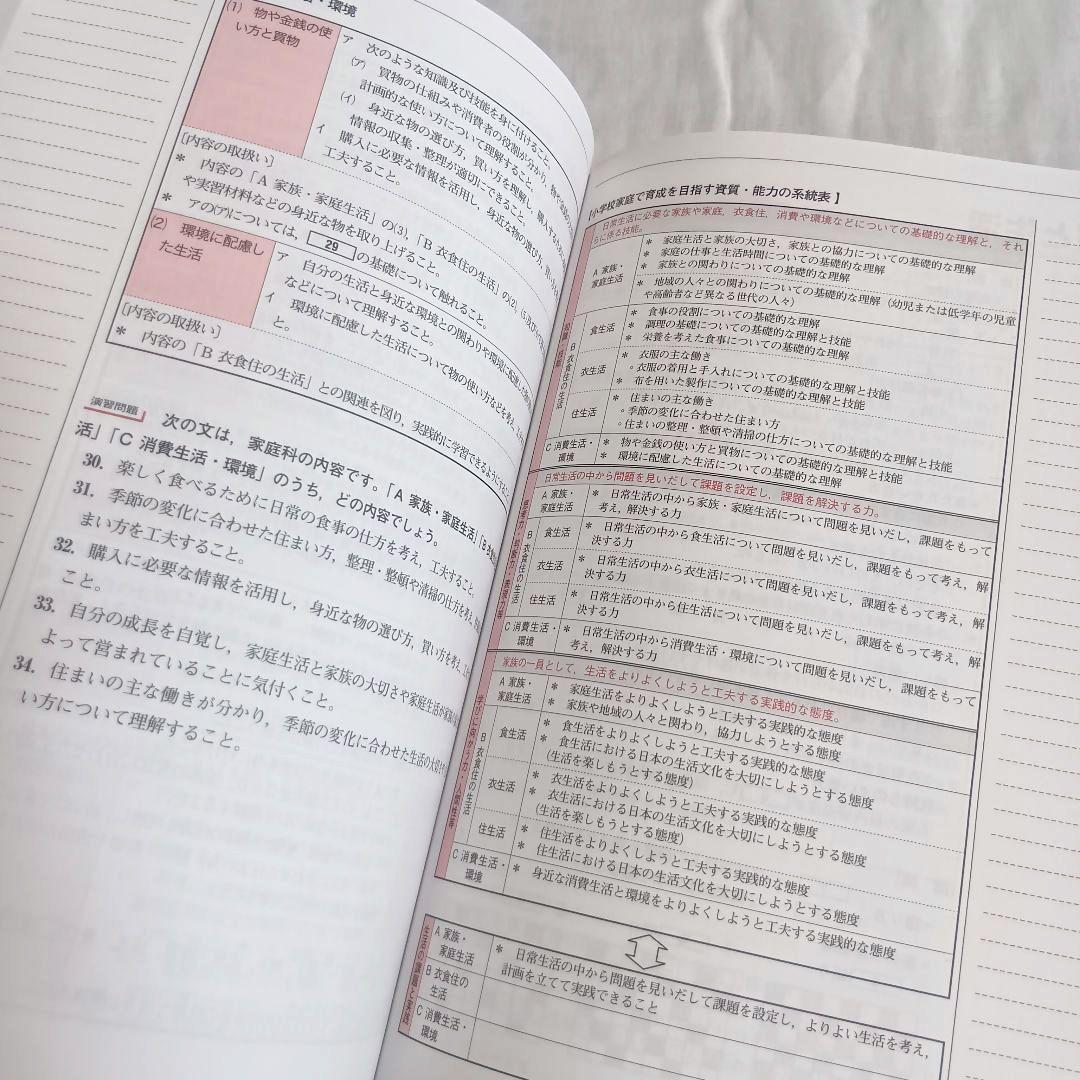 ・環境
(1) 物や金銭の使
い方と買物
ア 次のような知識及び技能を身に付けること。
(ア) 買物の仕組みや消費者の役割が分かり,物や金銭の
計画的な使い方について理解すること。
(イ) 身近な物の選び方,買い方を理解し,購入するために
情報の収集・整理が適切にできること。
イ 購入に必要な情報を活用し,身近な物の選び方,買い方を
工夫すること。
[内容の取扱い]
* 内容の「A 家族・家庭生活」の(3),「B 衣食住の生活」の(2),(5)及び
や実習材料などの身近な物を取り上げること。
* アの(ア)については, 29 の基礎について触れること。
(2) 環境に配慮し
た生活
ア 自分の生活と身近な環境との関わりや環境に配慮した物の
などについて理解すること。
イ 環境に配慮した生活について物の使い方などを考え,工夫
と。
[内容の取扱い]
* 内容の「B 衣食住の生活」との関連を図り,実践的に学習できるようにすること
演習問題
次の文は,家庭科の内容です。「A 家族・家庭生活」「B 衣食住
活」「C 消費生活・環境」のうち,どの内容でしょう。
30. 楽しく食べるために日常の食事の仕方を考え,工夫すること。
31. 季節の変化に合わせた住まい方,整理・整頓や清掃の仕方を考え,
まい方を工夫すること。
32. 購入に必要な情報を活用し,身近な物の選び方,買い方を考え,工夫
こと。
33. 自分の成長を自覚し,家庭生活と家族の大切さや家庭生活が家族の
よって営まれていることに気付くこと。
34. 住まいの主な働きが分かり,季節の変化に合わせた生活の大切さや
い方について理解すること。
【小学校家庭で育成を目指す資質・能力の系統表】
日常生活に必要な家族や家庭,衣食住,消費や環境などについての基礎的な理解と,それ
らに係る技能。
知識・技能
A 家族・
家庭生活
* 家庭生活と家族の大切さ,家族との協力についての基礎的な理解
* 家庭の仕事と生活時間についての基礎的な理解
* 家族との関わりについての基礎的な理解
* 地域の人々との関わりについての基礎的な理解(幼児または低学年の児童
や高齢者など異なる世代の人々)
B 衣食住の生活
食生活
* 食事の役割についての基礎的な理解
* 調理の基礎についての基礎的な理解と技能
* 栄養を考えた食事についての基礎的な理解
衣生活
* 衣服の主な働き
◦衣服の着用と手入れについての基礎的な理解と技能
* 布を用いた製作についての基礎的な理解と技能
住生活
* 住まいの主な働き
◦季節の変化に合わせた住まい方
◦住まいの整理・整頓や清掃の仕方についての基礎的な理解と技能
C 消費生活・
環境
* 物や金銭の使い方と買物についての基礎的な理解と技能
* 環境に配慮した生活についての基礎的な理解
日常生活の中から問題を見いだして課題を設定し,課題を解決する力。
思考力・判断力・表現力等
A 家族・
家庭生活
* 日常生活の中から家族・家庭生活について問題を見いだし,課題をもって
考え,解決する力
B 衣食住の生活
食生活
* 日常生活の中から食生活について問題を見いだし,課題をもって考え,解
決する力
衣生活
* 日常生活の中から衣生活について問題を見いだし,課題をもって考え,解
決する力
住生活
* 日常生活の中から住生活について問題を見いだし,課題をもって考え,解
決する力
C 消費生活・
環境
* 日常生活の中から消費生活・環境について問題を見いだし,課題をもって
考え,解決する力
家族の一員として,生活をよりよくしようと工夫する実践的な態度。
学びに向かう力・人間性等
A 家族・
家庭生活
* 家庭生活をよりよくしようと工夫する実践的な態度
* 家族や地域の人々と関わり,協力しようとする態度
B 衣食住の生活
食生活
* 食生活をよりよくしようと工夫する実践的な態度
* 食生活における日本の生活文化を大切にしようとする態度
(生活を楽しもうとする態度)
衣生活
* 衣生活をよりよくしようと工夫する実践的な態度
* 衣生活における日本の生活文化を大切にしようとする態度
(生活を楽しもうとする態度)
住生活
* 住生活をよりよくしようと工夫する実践的な態度
* 住生活における日本の生活文化を大切にしようとする態度
C 消費生活・
環境
* 身近な消費生活と環境をよりよくしようと工夫する実践的な態度
生活の課題と実践
A 家族・
家庭生活
B 衣食住の
生活
C 消費生活・
環境
* 日常生活の中から問題を見いだして課題を設定し,よりよい生活を考え,
計画を立てて実践できること